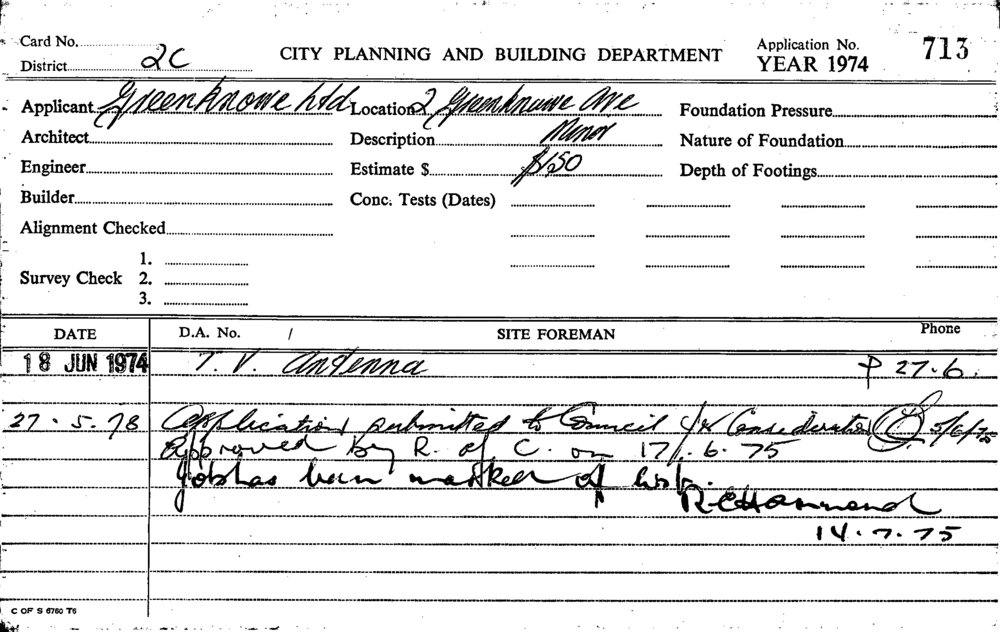 Card No.
CITY PLANNING AND BUILDING DEPARTMENT
Application No. 713
District 2C
YEAR 1974
Applicant Greenknowe Ltd Location 2 Greenknowe Ave Foundation Pressure
Architect Description Minor Nature of Foundation
Engineer Estimate $ $150 Depth of Footings
Builder Conc. Tests (Dates)
Alignment Checked
1.
Survey Check 2.
3.
DATE D.A. No. / SITE FOREMAN Phone
18 JUN 1974 T. V. Antenna P 27.6.
27.5.78 Application submitted to Council for Consideration 5/6/75
Approved by R. of C. on 17/.6.75
Job has been marked of list.
R.C. Hammond
14.7.75
C OF S 6760 T6